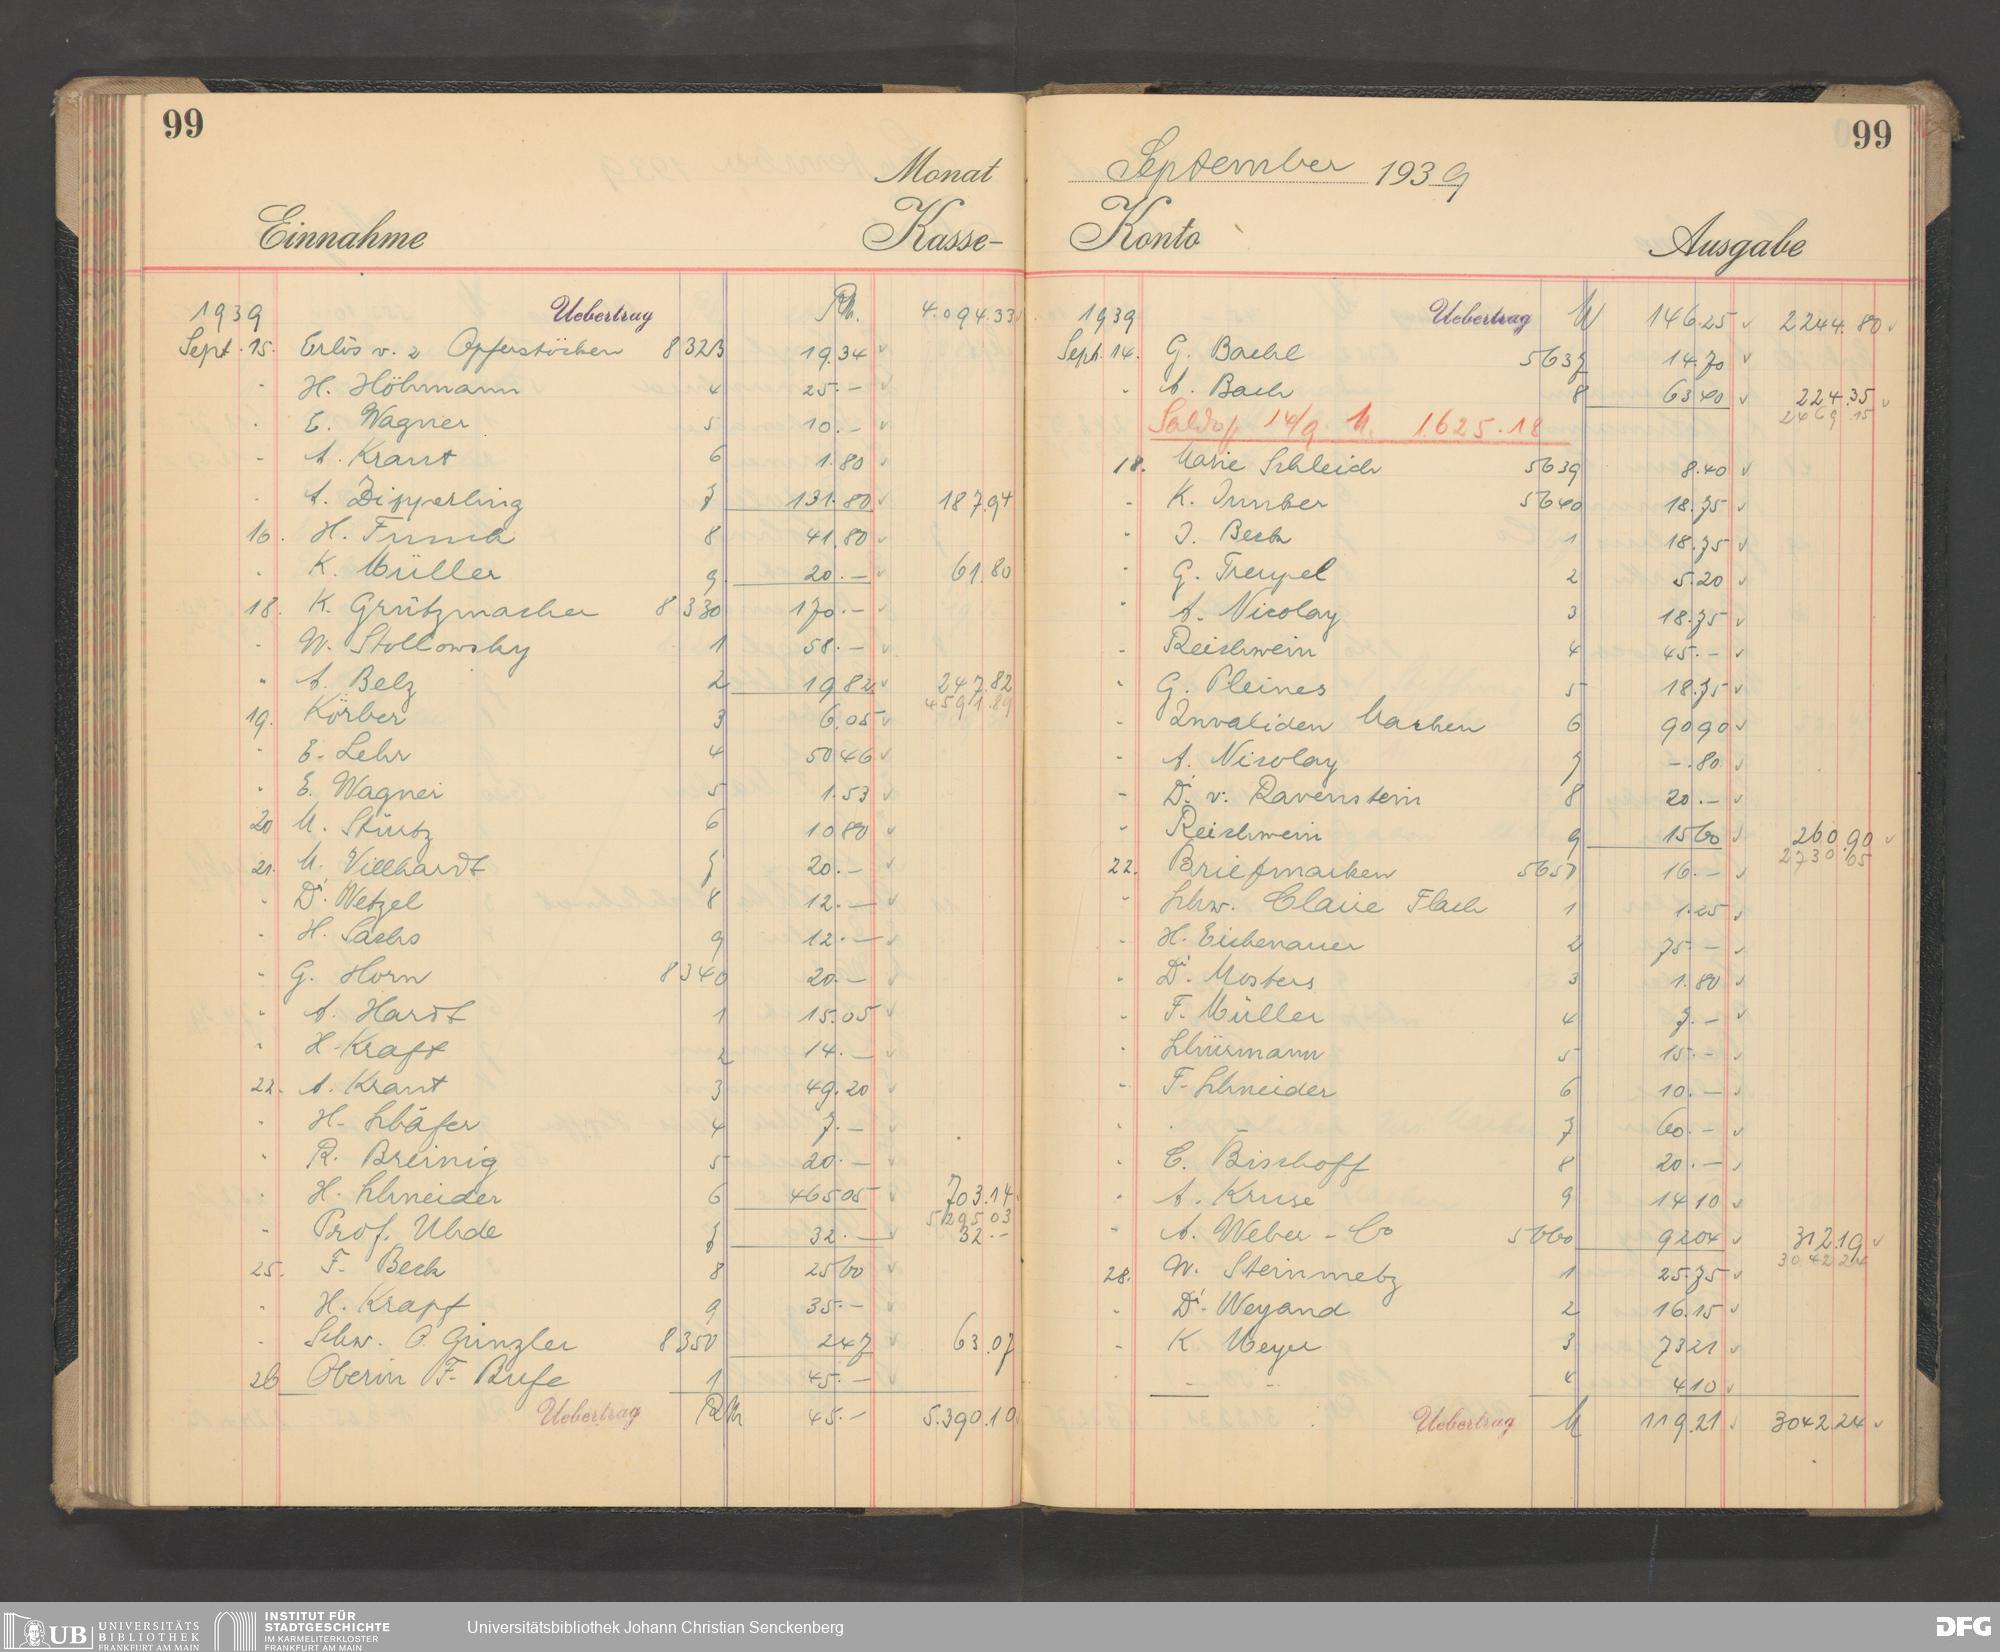 99
Monat
Einnahme Kasse-
1939 Uebertrag RM. 4.094.33
Sept. 15. Erlös v. 2 Opferstöcken 8323 19.34
- H. Höhmann 4 25.-
- E. Wagner 5 10.-
- A. Kraut 6 1.80
- A. Zipperling 7 131.80 187.94
16. H. Funck 8 41.80
- K. Müller 9 20.- 61.80
18. K. Grützmacher 8330 170.-
- W. Stollowsky 1 58.-
- A. Belz 2 19.82 247.82
4591.89
19. Körber 3 6.05
- E. Lehr 4 50 46
- E. Wagner 5 1.53
20 M. Stürtz 6 10 80
21. M. Villhardt 7 20.-
- Dr. Wetzel 8 12.-
- H. Sachs 9 12.-
- G. Horn 8340 20.-
- A. Hardt 1 15.05
- H. Kraft 2 14.-
22. A. Kraut 3 49.20
- H. Schäfer 4 7.-
- R. Breinig 5 20.-
- H. Schneider 6 465 05 703.14
5295 03
- Prof. Uhde 7 32.- 32.-
25. F. Beck 8 25 60
- H. Krapf 9 35.-
- Schw. O. Günzler 8350 2 47 63.07
26 Oberin F. Bufe 1 45.-
Uebertrag RM 45.- 5.390.10
99
September 1939
Konto Ausgabe
1939 Uebertrag M 146.25 2244.80
Sept. 14. G. Baehl 5637 14.70
- A. Bach 8 63 40 224.35
2469 15
Saldo p 14/9 M. 1.625.18
18. Marie Schleich 5639 8.40
- K. Junker 5640 18.75
- J. Beck 1 18.75
- G. Treupel 2 5.20
- A. Nicolay 3 18.75
- Reichwein 4 45.-
- G. Pleines 5 18.75
- Invaliden Marken 6 90 90
- A. Nicolay 7 -.80
- Dr. v. Ravenstein 8 20.-
- Reichwein 9 15 60 260.90
2730 05
22. Briefmarken 5650 16.-
- Schw. Claire Flach 1 1.25
- H. Eichenauer 2 75 -
- Dr. Mosters 3 1.80
- F. Müller 4 7.-
- Schürmann 5 15.-
- F. Schneider 6 10.-
- - 7 60.-
- C. Bischoff 8 20.-
- A. Kruse 9 14 10
- A. Weber - Co 5660 92 04 312.19
3042 24
28. W. Steinmetz 1 25.75
- Dr. Weyand 2 16.15
- K Meyer 3 73 21
- - - 4 4 10
Uebertrag M 119.21 3042 24
UB UNIVERSITÄTS
BIBLIOTHEK
FRANKFURT AM MAIN
INSTITUT FÜR
STADTGESCHICHTE
IM KARMELITERKLOSTER
FRANKFURT AM MAIN
Universitätsbibliothek Johann Christian Senckenberg
DFG